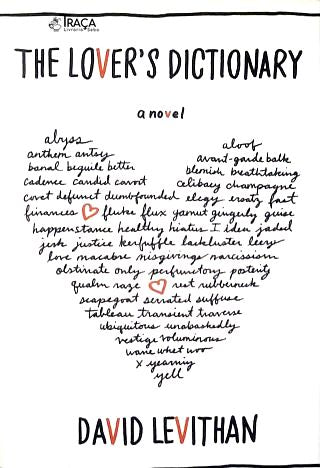 IRAÇA
Livraria • Sebo
THE LOVER'S DICTIONARY
a novel
abyss aloof
anthem antsy avant-garde balk
banal beguile better blemish breathtaking
cadence candid cavort celibacy champagne
covet defunct dumbfounded elegy ersatz fast
finances fluke flux gamut gingerly guise
happenstance healthy hiatus I idea jaded
jerk justice kerfuffle lackluster leery
love macabre misgivings narcissism
obstinate only perfunctory posterity
qualm raze rest rubberneck
scapegoat serrated suffuse
tableau transient traverse
ubiquitous unabashedly
vestige voluminous
wane whet woo
x yearning
yell
DAVID LEVITHAN